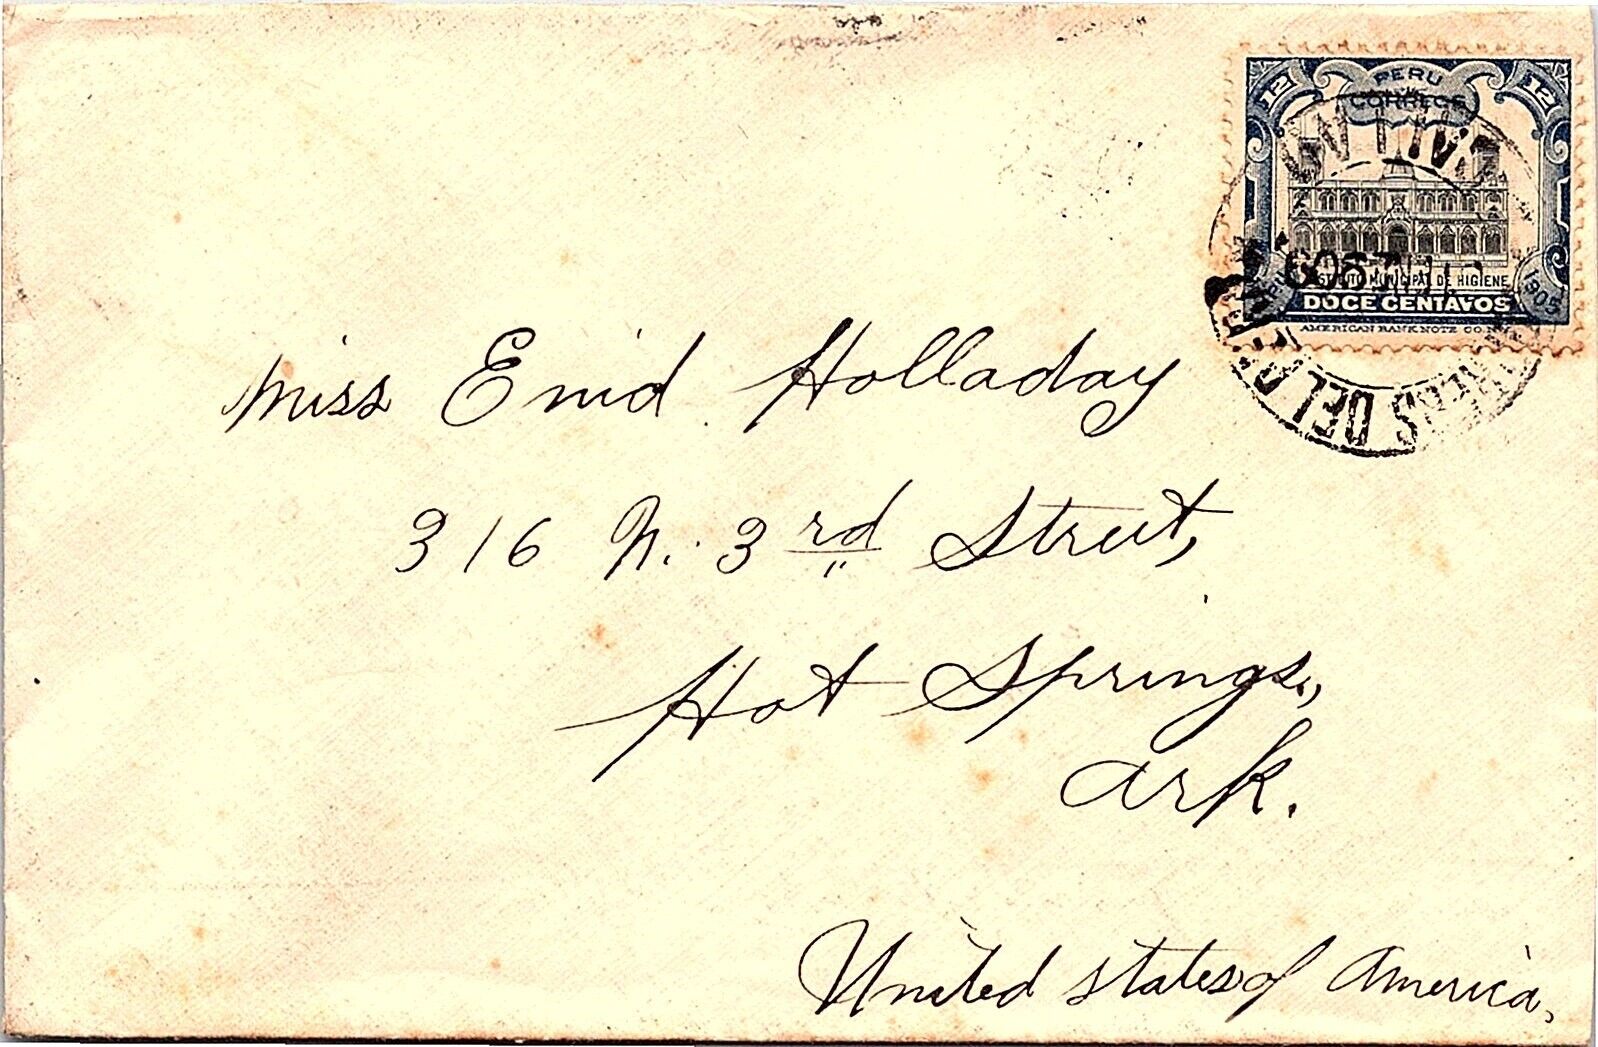 12 PERU 12
CORREOS
INSTITUTO MUNICIPAL DE HIGIENE
1905
DOCE CENTAVOS
AMERICAN BANK NOTE CO. N.Y.
DEL
Miss Enid Holladay
316 N. 3rd Street,
Hot Springs,
Ark.
United States of America,